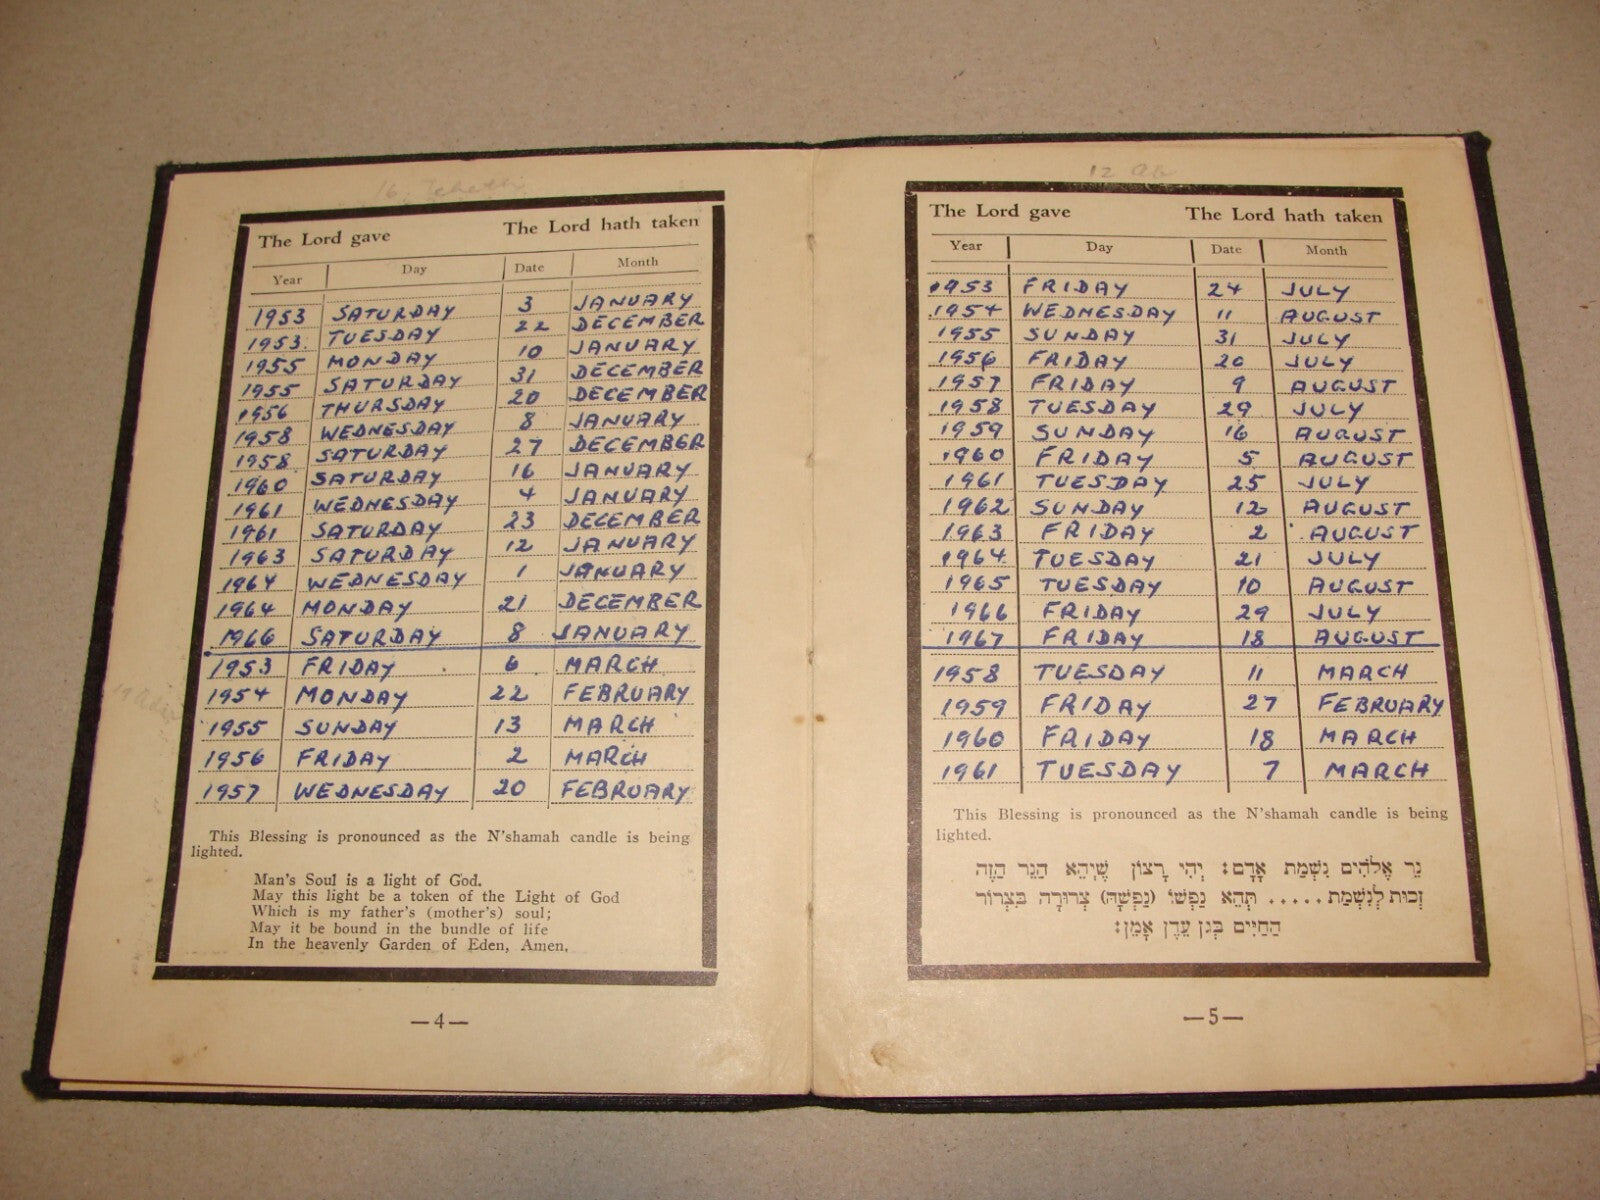 16. Tebeth
The Lord gave The Lord hath taken
Year Day Date Month
1953 SATURDAY 3 JANUARY
1953. TUESDAY 22 DECEMBER
1955 MONDAY 10 JANUARY
1955 SATURDAY 31 DECEMBER
1956 THURSDAY 20 DECEMBER
1958 WEDNESDAY 8 JANUARY
1958 SATURDAY 27 DECEMBER
1960 SATURDAY 16 JANUARY
1961 WEDNESDAY 4 JANUARY
1961 SATURDAY 23 DECEMBER
1963 SATURDAY 12 JANUARY
1964 WEDNESDAY 1 JANUARY
1964 MONDAY 21 DECEMBER
1966 SATURDAY 8 JANUARY
1953 FRIDAY 6 MARCH
1954 MONDAY 22 FEBRUARY
1955 SUNDAY 13 MARCH
1956 FRIDAY 2 MARCH
1957 WEDNESDAY 20 FEBRUARY
This Blessing is pronounced as the N'shamah candle is being
lighted.
Man's Soul is a light of God.
May this light be a token of the Light of God
Which is my father's (mother's) soul;
May it be bound in the bundle of life
In the heavenly Garden of Eden, Amen.
—4—
12 Ab
The Lord gave The Lord hath taken
Year Day Date Month
1953 FRIDAY 24 JULY
1954 WEDNESDAY 11 AUGUST
1955 SUNDAY 31 JULY
1956 FRIDAY 20 JULY
1957 FRIDAY 9 AUGUST
1958 TUESDAY 29 JULY
1959 SUNDAY 16 AUGUST
1960 FRIDAY 5 AUGUST
1961 TUESDAY 25 JULY
1962 SUNDAY 12 AUGUST
1963 FRIDAY 2 AUGUST
1964 TUESDAY 21 JULY
1965 TUESDAY 10 AUGUST
1966 FRIDAY 29 JULY
1967 FRIDAY 18 AUGUST
1958 TUESDAY 11 MARCH
1959 FRIDAY 27 FEBRUARY
1960 FRIDAY 18 MARCH
1961 TUESDAY 7 MARCH
This Blessing is pronounced as the N'shamah candle is being
lighted.
נֵר אֱלֹהִים נִשְׁמַת אָדָם: יְהִי רָצוֹן שֶׁיְּהֵא הַנֵּר הַזֶּה
זְכוּת לְנִשְׁמַת . . . . . תְּהֵא נַפְשׁוֹ (נַפְשָׁהּ) צְרוּרָה בִּצְרוֹר
הַחַיִּים בְּגַן עֵדֶן אָמֵן:
—5—